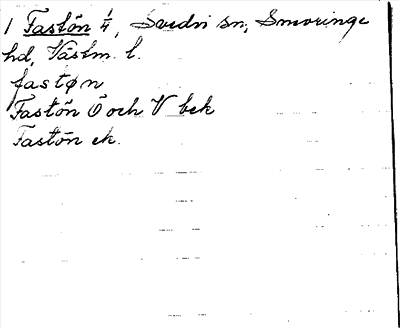 1 Fastön 1/4, Svedvi sn, Snevringe
hd, Västm. l.
fastøn
Fastön Ö och V bek
Fastön ek.